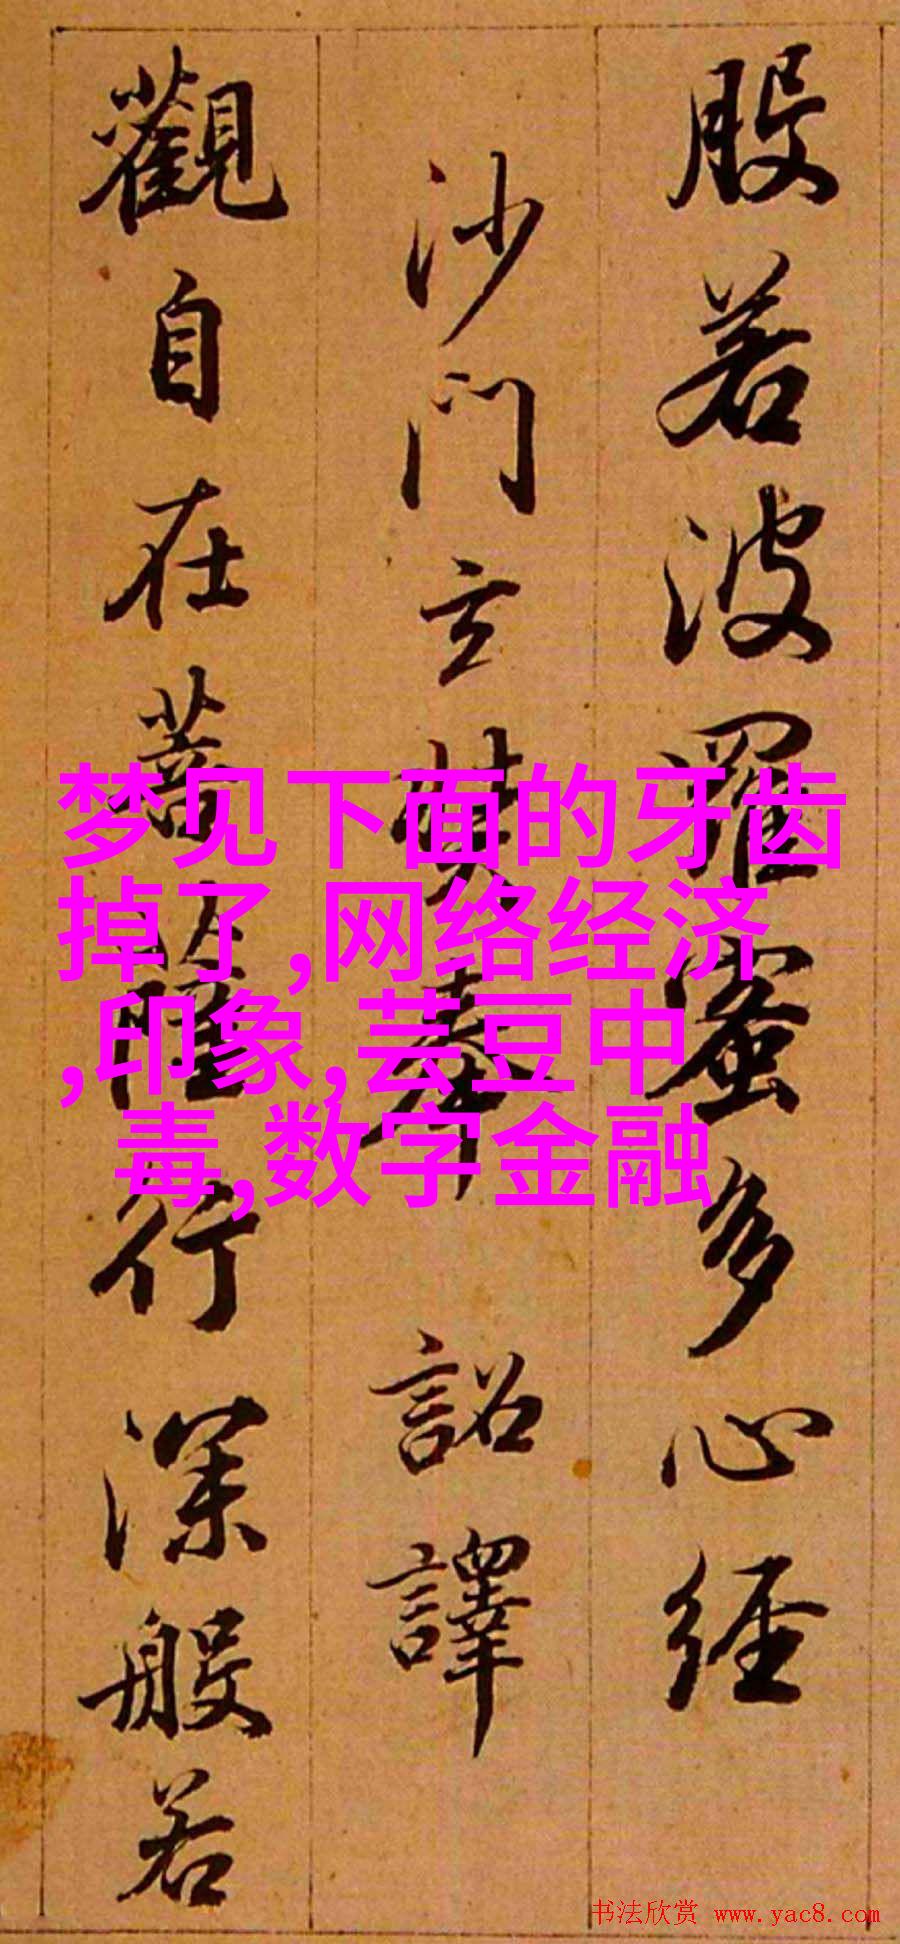 般若波羅蜜多心經
沙門玄奘奉 詔譯
觀自在菩薩行深般若
梦见下面的牙齿
掉了,网络经济
,印象,芸豆中
毒,数字金融
书法欣赏 www.yac8.com